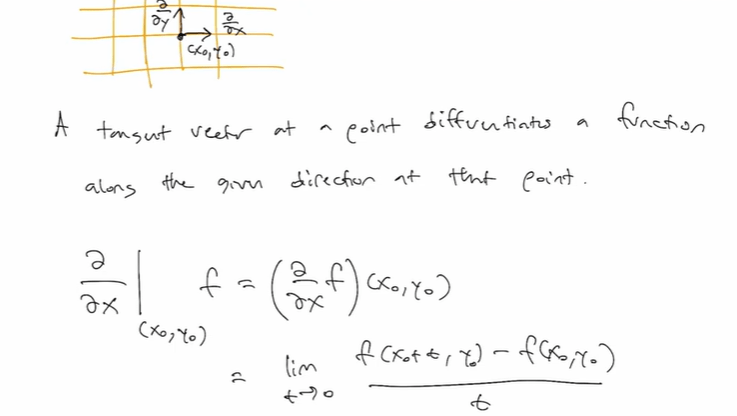 ∂/∂y ∂/∂x
(x₀,y₀)
A tangent vector at a point differentiates a function
along the given direction at that point.
∂/∂x |_(x₀,y₀) f = (∂/∂x f)(x₀,y₀)
= lim_{t→0} (f(x₀+t, y₀) - f(x₀,y₀))/t